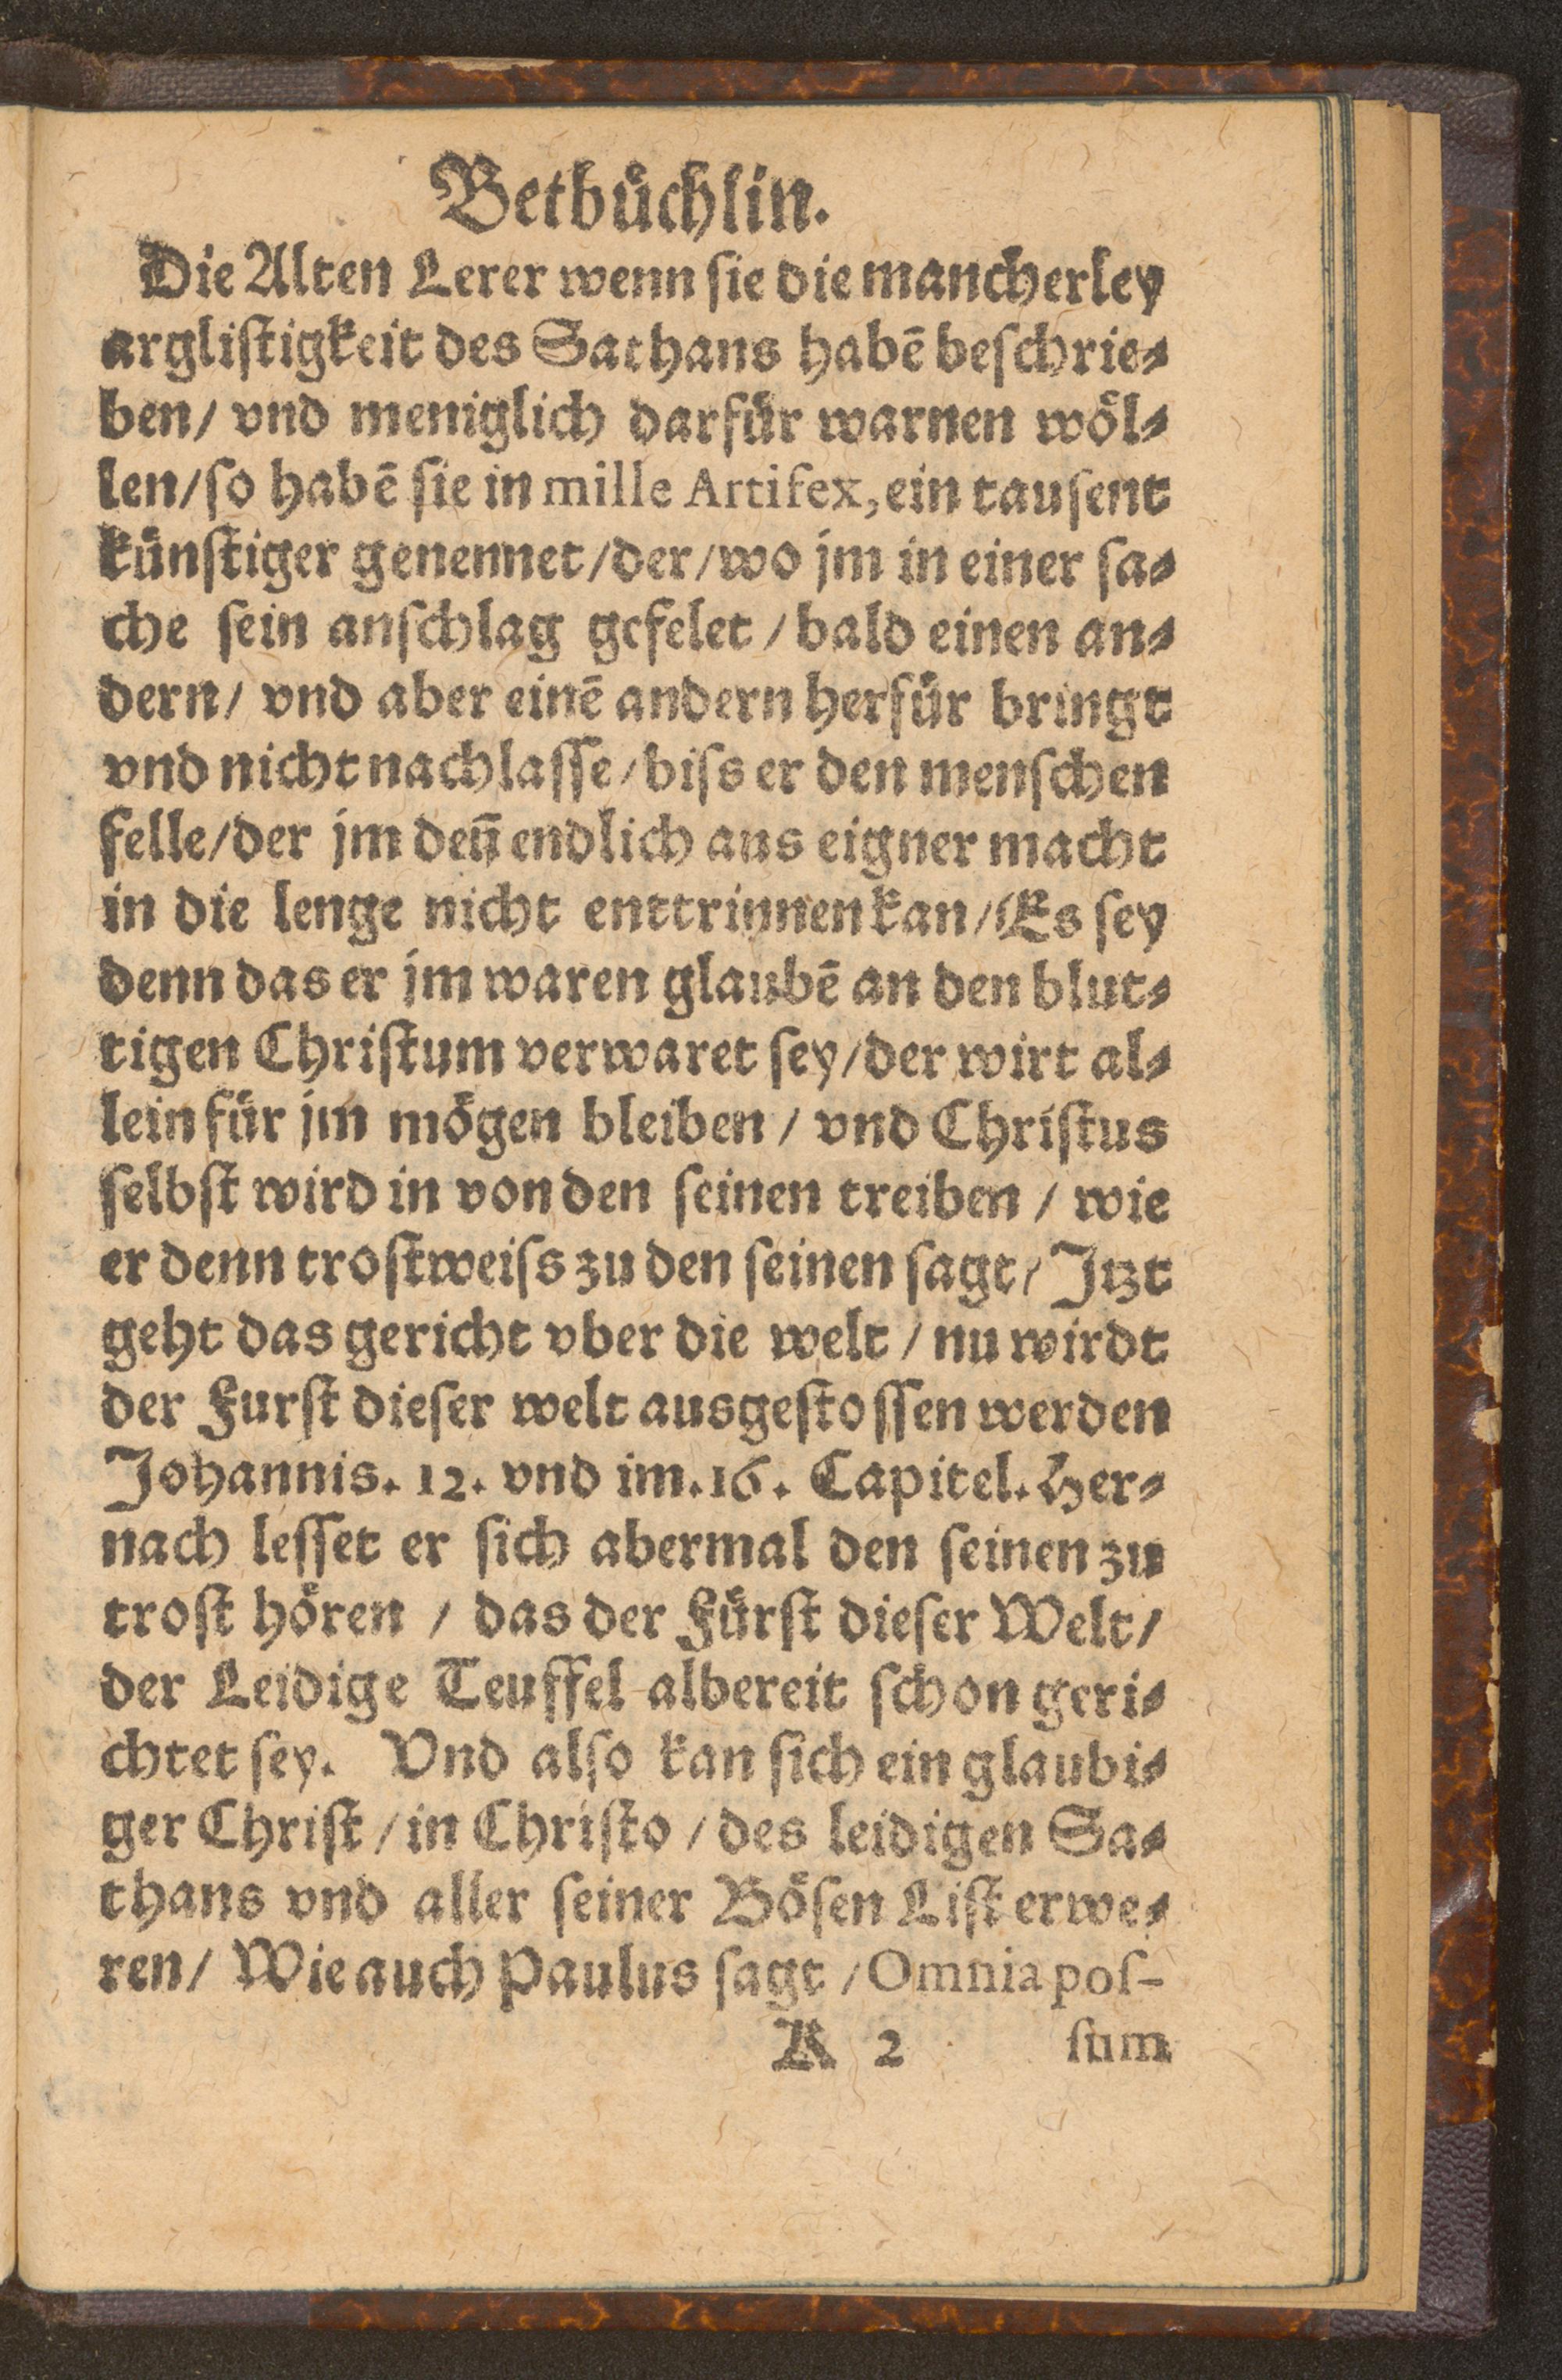 Betbuͤchlin.
Die Alten Lerer wenn ſie die mancherley
argliſtigkeit des Sathans habẽ beſchrie⸗
ben/ vnd meniglich darfuͤr warnen woͤl⸗
len/ſo habẽ ſie in mille Artifex, ein tauſent
kuͤnſtiger genennet/der/wo jm in einer ſa⸗
che ſein anſchlag gefelet / bald einen an⸗
dern/ vnd aber einẽ andern herfuͤr bringt
vnd nicht nachlaſſe/biſs er den menſchen
felle/der jm deñ endlich aus eigner macht
in die lenge nicht enttrinnen kan/Es ſey
denn das er jm waren glaubẽ an den blut⸗
tigen Chriſtum verwaret ſey/der wirt al⸗
lein fuͤr jm moͤgen bleiben / vnd Chriſtus
ſelbſt wird in von den ſeinen treiben / wie
er denn troſtweiſs zu den ſeinen ſagt/ Jtzt
geht das gericht vber die welt / nu wirdt
der Furſt dieſer welt ausgeſtoſſen werden
Johannis. 12. vnd im. 16. Capitel. Her⸗
nach leſſet er ſich abermal den ſeinen zu
troſt hoͤren / das der Fuͤrſt dieſer Welt/
der Leidige Teuffel albereit ſchon geri⸗
chtet ſey. Vnd alſo kan ſich ein glaubi⸗
ger Chriſt / in Chriſto / des leidigen Sa⸗
thans vnd aller ſeiner Boͤſen Liſt erwe⸗
ren/ Wie auch Paulus ſagt / Omnia poſ-
K 2 ſum